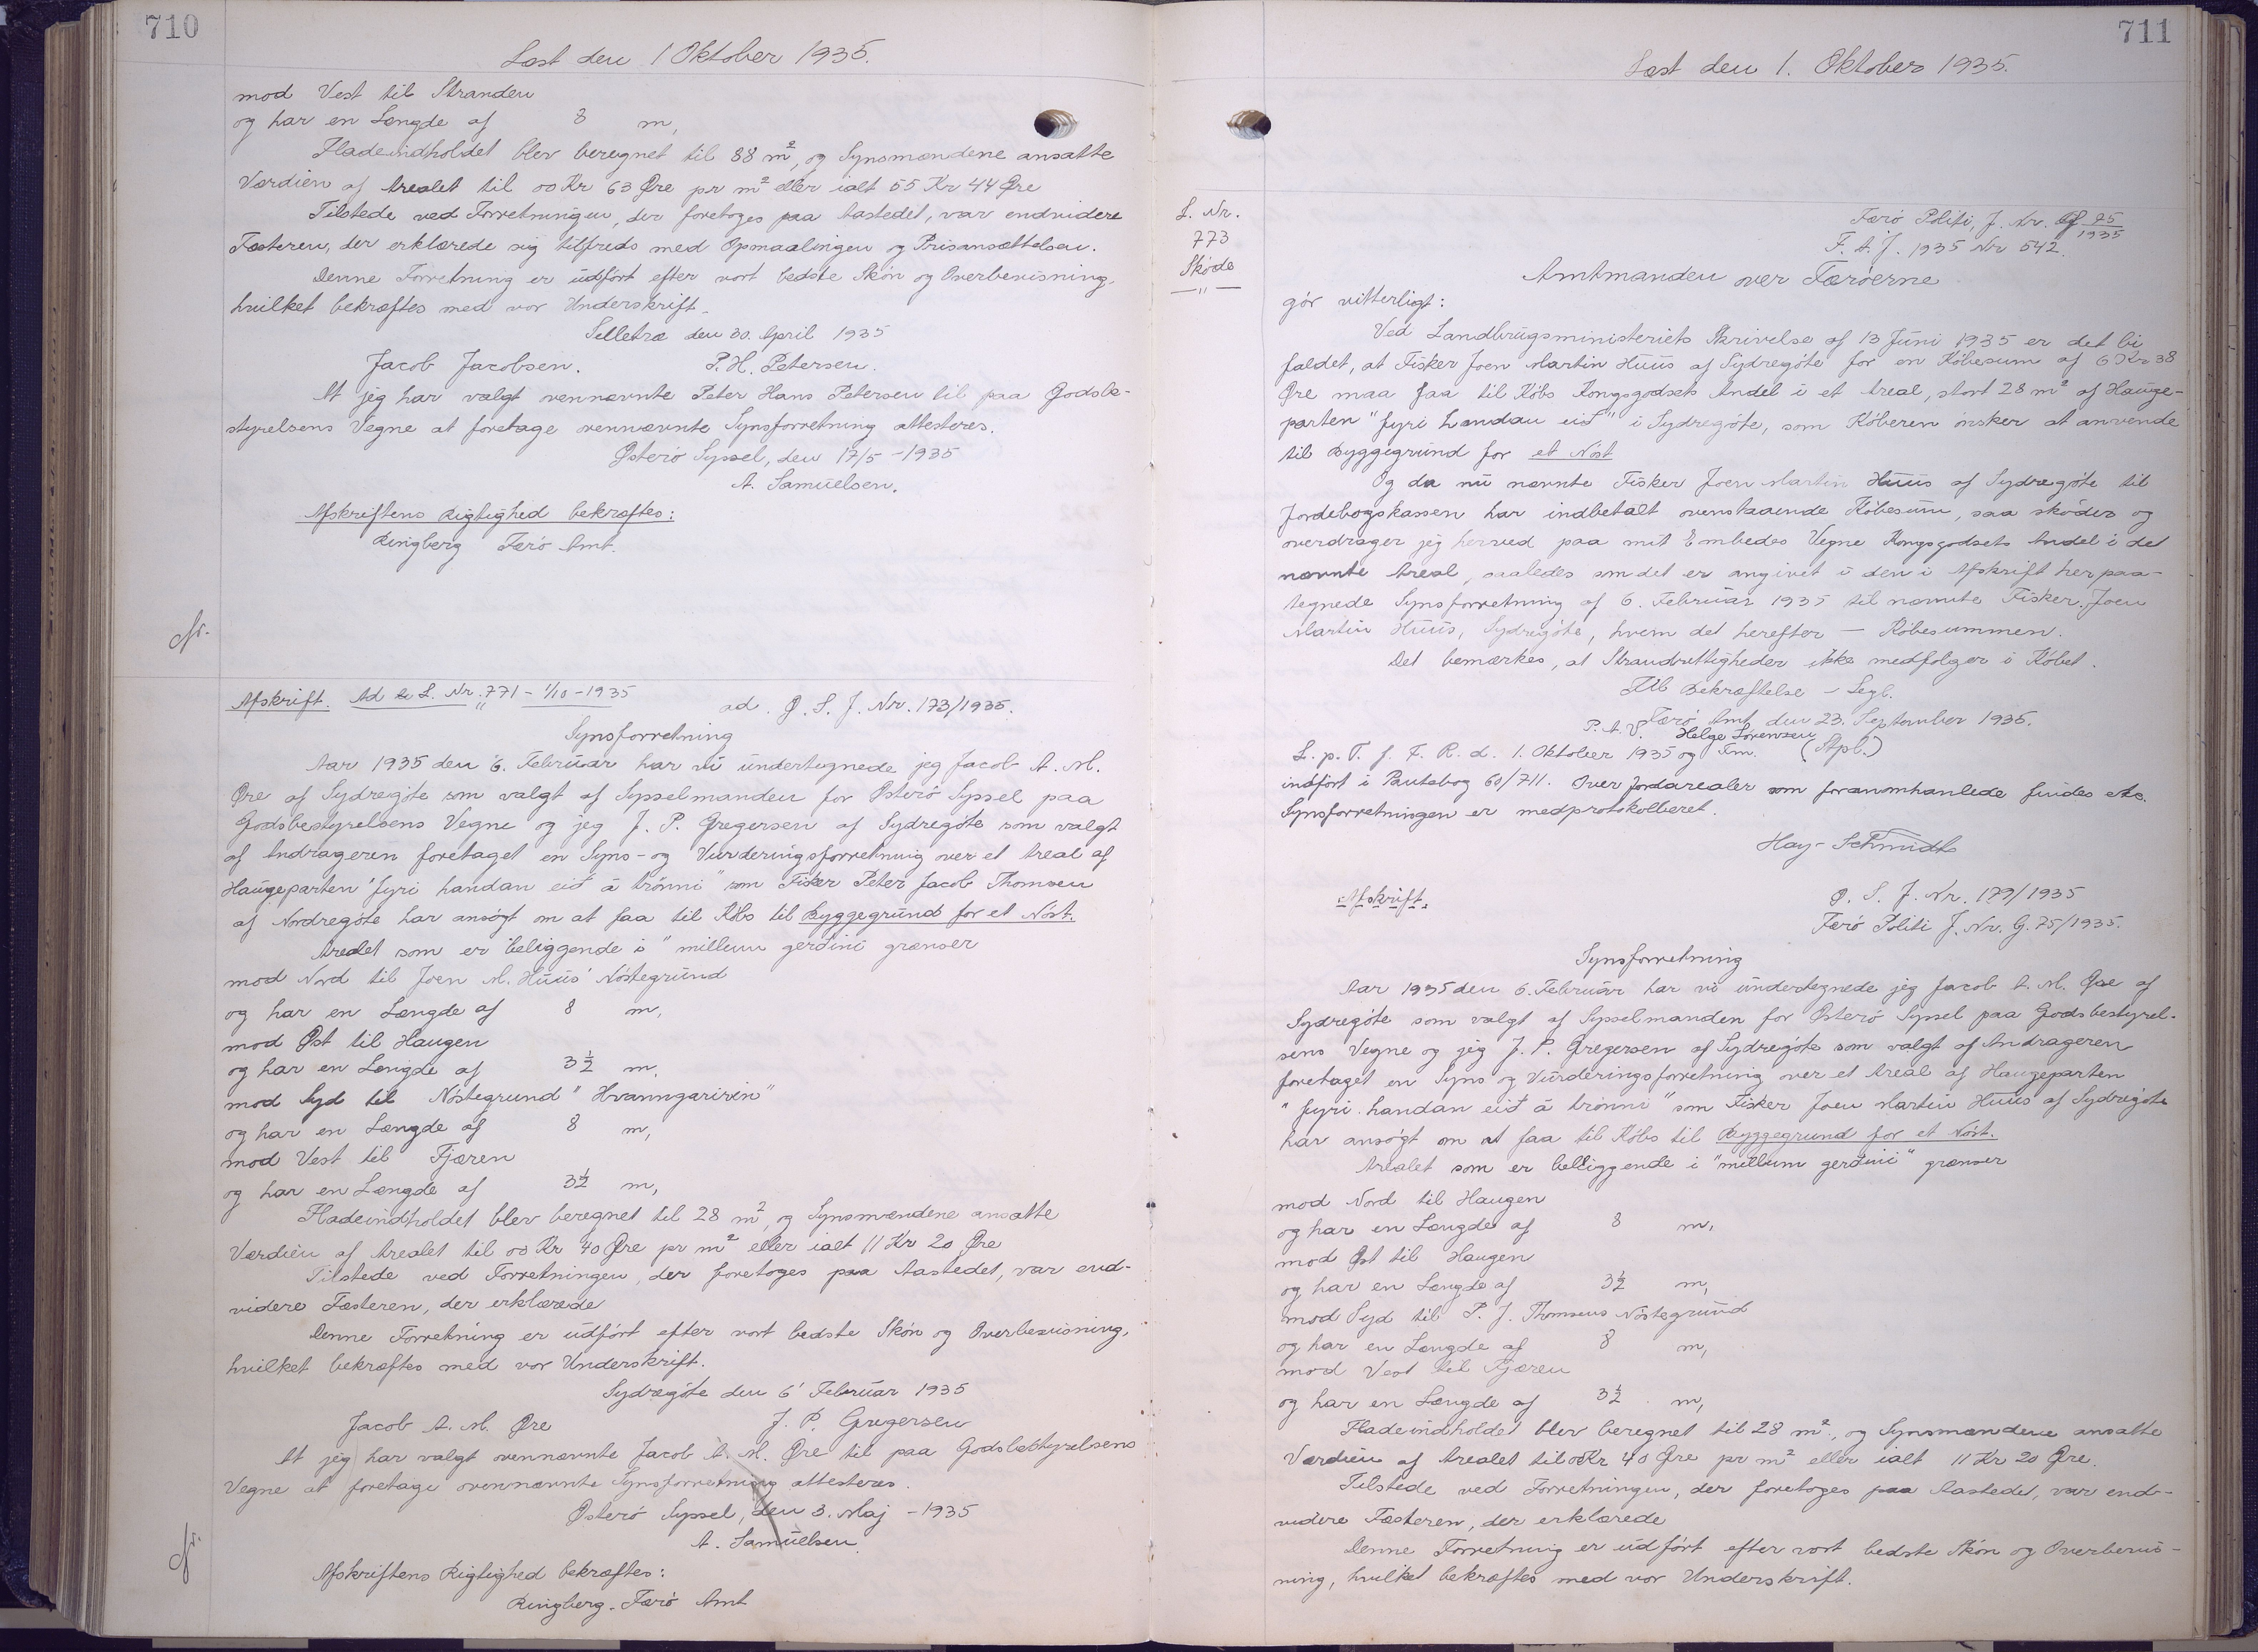 710
Læst den 1 Oktober 1935.
mod Vest til Stranden
og har en Længde af 8 m,
Fladeindholdet blev beregnet til 88 m², og Synsmændene ansatte
Værdien af Arealet til 00 Kr 63 Øre pr m² eller ialt 55 Kr 44 Øre
Tilstede ved Forretningen, der foretoges paa Aastedet, var endvidere
Fæsteren, der erklærede sig tilfreds med Opmaalingen og Prisansættelsen.
Denne Forretning er udført efter vort bedste Skön og Overbevisning,
hvilket bekræftes med vor Underskrift.
Selletræ den 30. April 1935
Jacob Jacobsen. P. H. Petersen.
At jeg har valgt ovennævnte Peter Hans Petersen til paa Godsbe-
styrelsens Vegne at foretage ovennævnte Synsforretning attesteres.
Österö Syssel, den 17/5 - 1935
A. Samuelsen.
Afskriftens Rigtighed bekræftes:
Ringberg Færö Amt.
Afskrift. Ad L. Nr. 771 - 1/10 - 1935
ad. Ø. S. J. Nr. 173/1935.
Synsforretning
Aar 1935 den 6. Februar har vi undertegnede jeg Jacob A. M.
Øre af Sydregöte som valgt af Sysselmanden for Österö Syssel paa
Godsbestyrelsens Vegne og jeg J. P. Gregersen af Sydregöte som valgt
af Andrageren foretaget en Syns- og Vurderingsforretning over et Areal af
Haugeparten "fyri handan eið á trönni" som Fisker Peter Jacob Thomsen
af Nordregöte har ansögt om at faa til Köbs til Byggegrund for et Nöst.
Arealet som er beliggende i "millum gerdini grænser
mod Nord til Joen M. Huus' Nöstegrund
og har en Længde af 8 m,
mod Øst til Haugen
og har en Længde af 3½ m,
mod Syd til Nöstegrund "Hvanngaririn"
og har en Længde af 8 m,
mod Vest til Fjæren
og har en Længde af 3½ m,
Fladeindholdet blev beregnet til 28 m², og Synsmændene ansatte
Værdien af Arealet til 00 Kr 40 Øre pr m² eller ialt 11 Kr 20 Øre
Tilstede ved Forretningen, der foretoges paa Aastedet, var end-
videre Fæsteren, der erklærede
Denne Forretning er udfört efter vort bedste Skön og Overbevisning,
hvilket bekræftes med vor Underskrift.
Sydregöte den 6' Februar 1935
Jacob A. M. Øre J. P. Gregersen
At jeg har valgt ovennævnte Jacob A. M. Øre til paa Godsbestyrelsens
Vegne at foretage ovennævnte Synsforretning attesteres.
Österö Syssel, den 3. Maj - 1935
A. Samuelsen.
Afskriftens Rigtighed bekræftes:
Ringberg. Færö Amt
711
Læst den 1. Oktober 1935.
L. Nr.
773
Sköde
—„—
Færö Politi, J. Nr. G 75/1935
F. A. J. 1935 Nr 542.
Amtmanden over Færöerne
gör vitterligt:
Ved Landbrugsministeriets Skrivelse af 13 Juni 1935 er det bi
faldet, at Fisker Joen Martin Huus af Sydregöte for en Köbesum af 6 Kr 38
Øre maa faa til Köbs Kongsgodsets Andel i et Areal, stort 28 m² af Hauge-
parten "fyri handan eið" i Sydregöte, som Köberen önsker at anvende
til Byggegrund for et Nöst
Og da nu nævnte Fisker Joen Martin Huus af Sydregöte til
Jordebogskassen har indbetalt ovenstaaende Köbesum, saa sköder og
overdrager jeg herved paa mit Embedes Vegne Kongsgodsets Andel i det
nævnte Areal, saaledes som det er angivet i den i Afskrift herpaa-
tegnede Synsforretning af 6. Februar 1935 til nævnte Fisker Joen
Martin Huus, Sydregöte, hvem det herefter — Köbesummen.
Det bemærkes, at Strandrettigheder ikke medfölger i Köbet.
Til Bekræftelse - Segl.
Færö Amt den 23. September 1935.
P. A. V. Helge Sörensen
(Stpl.)
L. p. T. f. F. R. d. 1. Oktober 1935 og Fm.
indfört i Pantebog 60/711. Over Jordarealer som foranomhandlede findes etc.
Synsforretningen er medprotokolleret.
Hay-Schmidt
Afskrift.
Ø. S. J. Nr. 179/1935
Færö Politi J. Nr. G. 75/1935.
Synsforretning
Aar 1935 den 6. Februar har vi undertegnede jeg Jacob A. M. Øre af
Sydregöte som valgt af Sysselmanden for Österö Syssel paa Godsbestyrel-
sens Vegne og jeg J. P. Gregersen af Sydregöte som valgt af Andrageren
foretaget en Syns og Vurderingsforretning over et Areal af Haugeparten
"fyri handan eið á trönni" som Fisker Joen Martin Huus af Sydregöte
har ansögt om at faa til Köbs til Byggegrund for et Nöst.
Arealet som er belliggende i "millum gerdini" grænser
mod Nord til Haugen
og har en Længde af 8 m,
mod Øst til Haugen
og har en Længde af 3½ m,
mod Syd til P. J. Thomsens Nöstegrund
og har en Længde af 8 m,
mod Vest til Fjæren
og har en Længde af 3½ m,
Fladeindholdet blev beregnet til 28 m², og Synsmændene ansatte
Værdien af Arealet til 00 Kr 40 Øre pr m² eller ialt 11 Kr 20 Øre.
Tilstede ved Forretningen, der foretoges paa Aastedet, var end-
videre Fæsteren, der erklærede
Denne Forretning er udfört efter vort bedste Skön og Overbevis-
ning, hvilket bekræftes med vor Underskrift.